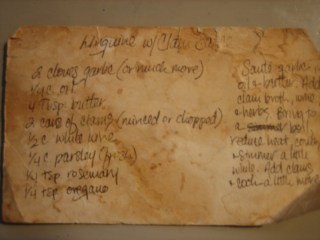 Linguine w/Clam Sa
8 cloves garlic (or much more)
1/4 c oil
4 Tbsp butter
2 cans of clams (minced or chopped)
1/2 c white wine
1/4 c parsley (fresh)
1/4 tsp rosemary
1/4 tsp oregano
Saute garlic
oil + butter. Add
clam broth, wine,
+ herbs. Bring to
a boil
reduce heat, cover
+ simmer a little
while. Add clams
+ cook a little more